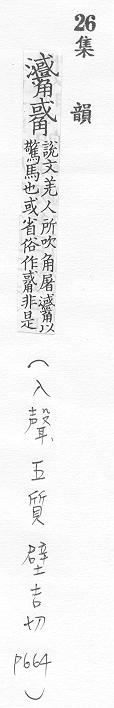 26
集韻
𧥑觱
說文羌人所吹角屠𧥑以
驚馬也或省俗作觱非是
（入聲五質 壁吉切 P664）